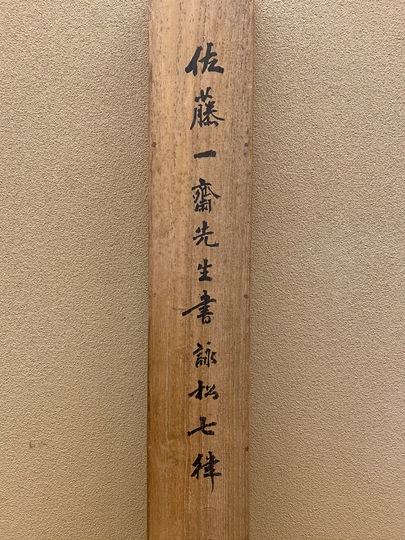 佐藤一齋先生書詠松七律